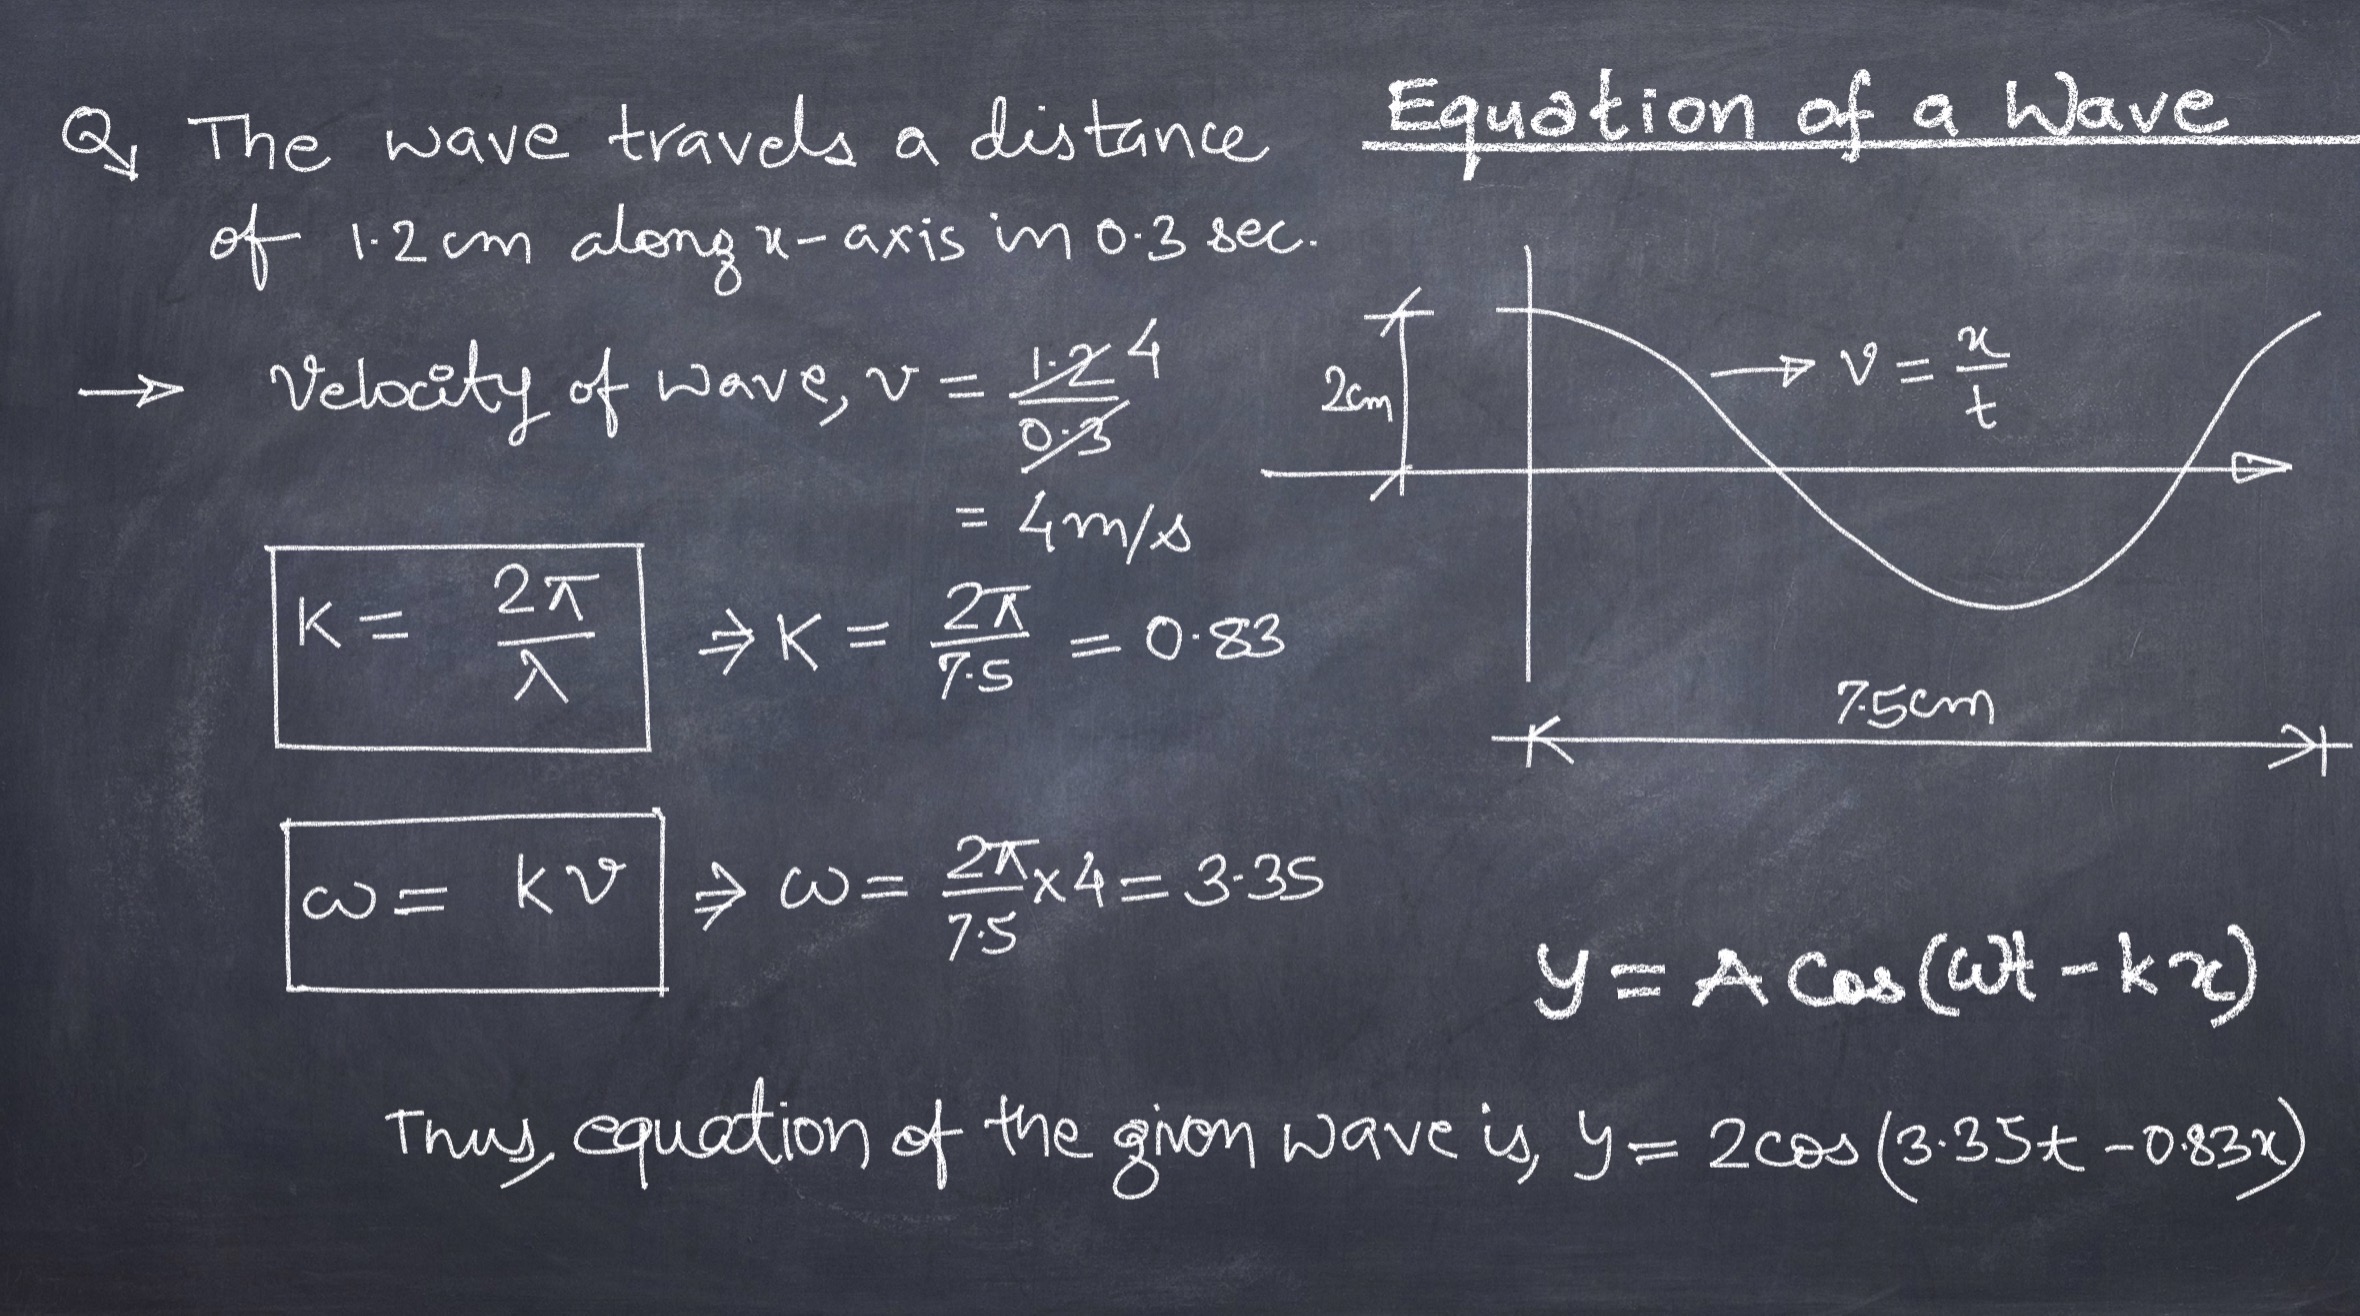 Equation of a Wave
Q, The wave travels a distance
of 1.2 cm along x-axis in 0.3 sec.
→ Velocity of wave, v = 1.2/0.3 4
= 4m/s
K = 2π/λ ⇒ K = 2π/7.5 = 0.83
ω = kv ⇒ ω = 2π/7.5 x 4 = 3.35
2cm
→ v = x/t
7.5cm
y = A Cos(ωt - kx)
Thus, equation of the given wave is, y = 2cos(3.35t - 0.83x)